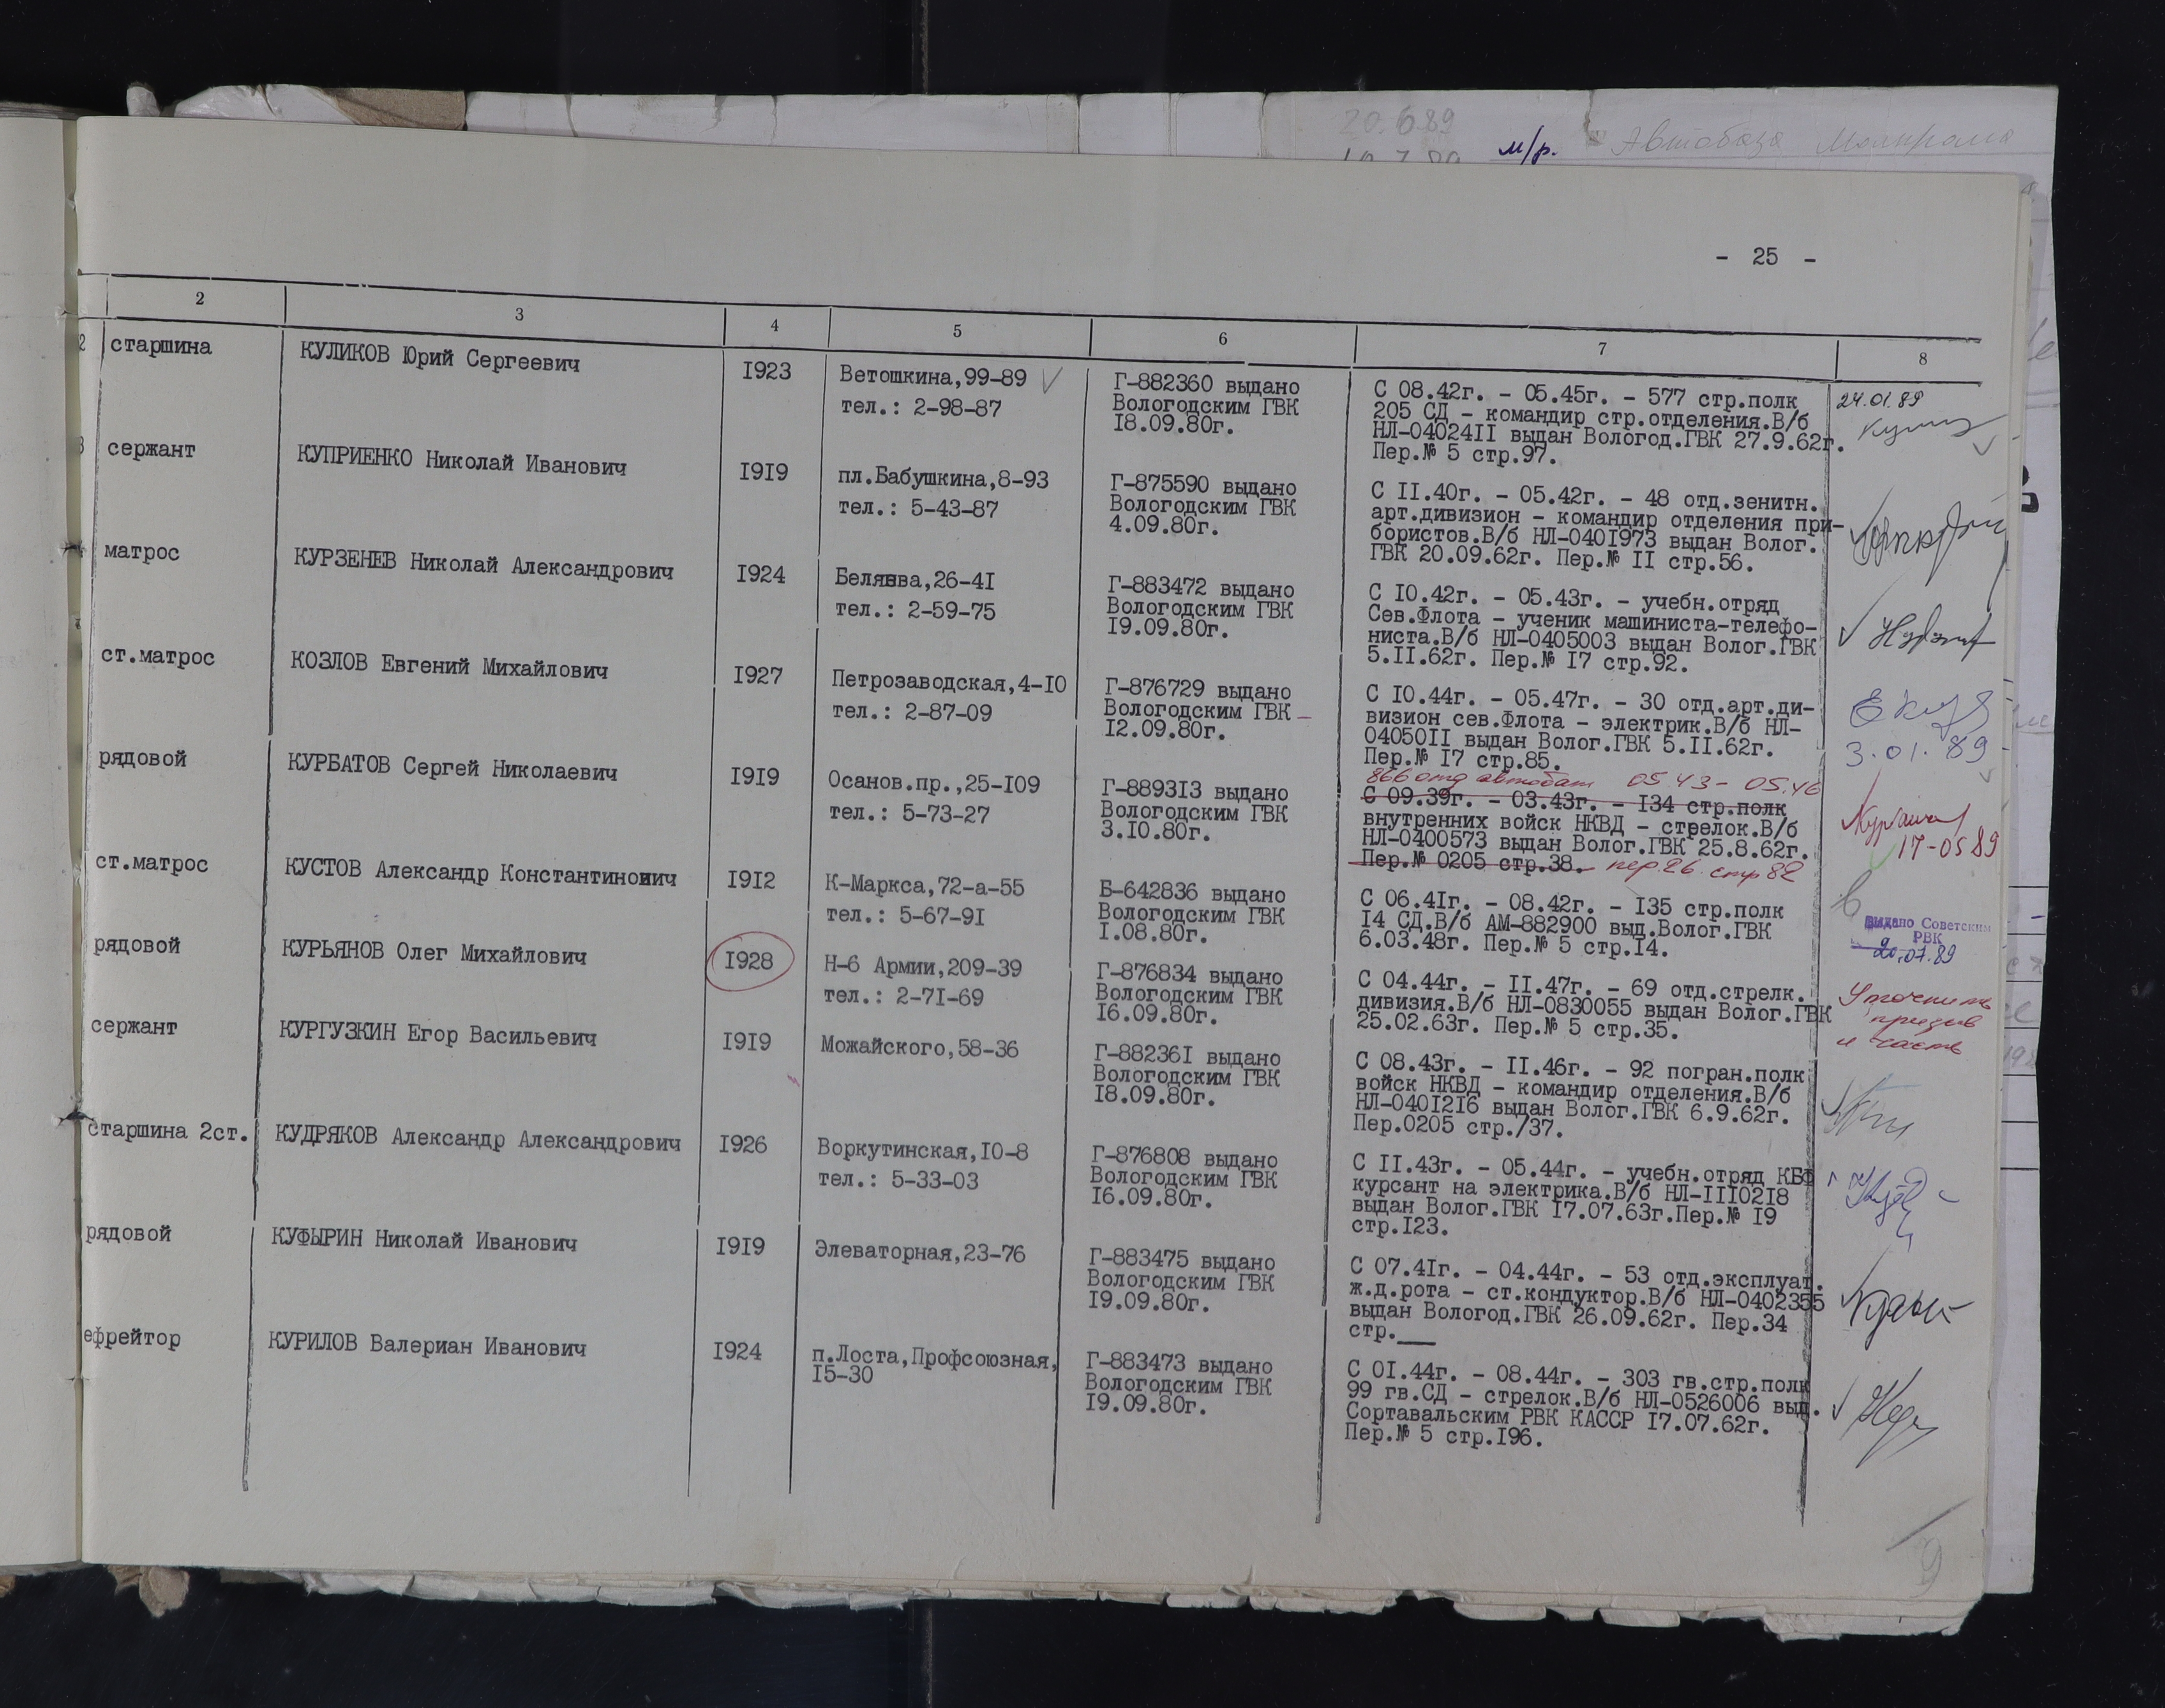 20.6.89
м/р. Автобаза
- 25 -
2 3 4 5 6 7 8
старшина
КУЛИКОВ Юрий Сергеевич
1923
Ветошкина,99-89
тел.: 2-98-87
Г-882360 выдано
Вологодским ГВК
18.09.80г.
С 08.42г. - 05.45г. - 577 стр.полк
205 СД - командир стр.отделения.В/б
НЛ-0402411 выдан Вологод.ГВК 27.9.62г.
Пер.№ 5 стр.97.
24.01.89
сержант
КУПРИЕНКО Николай Иванович
1919
пл.Бабушкина,8-93
тел.: 5-43-87
Г-875590 выдано
Вологодским ГВК
4.09.80г.
С 11.40г. - 05.42г. - 48 отд.зенитн.
арт.дивизион - командир отделения при-
бористов.В/б НЛ-0401973 выдан Волог.
ГВК 20.09.62г. Пер.№ 11 стр.56.
матрос
КУРЗЕНЕВ Николай Александрович
1924
Беляева,26-41
тел.: 2-59-75
Г-883472 выдано
Вологодским ГВК
19.09.80г.
С 10.42г. - 05.43г. - учебн.отряд
Сев.Флота - ученик машиниста-телефо-
ниста.В/б НЛ-0405003 выдан Волог.ГВК
5.11.62г. Пер.№ 17 стр.92.
ст.матрос
КОЗЛОВ Евгений Михайлович
1927
Петрозаводская,4-10
тел.: 2-87-09
Г-876729 выдано
Вологодским ГВК
12.09.80г.
С 10.44г. - 05.47г. - 30 отд.арт.ди-
визион сев.Флота - электрик.В/б НЛ-
0405011 выдан Волог.ГВК 5.11.62г.
Пер.№ 17 стр.85.
3.01.89
рядовой
КУРБАТОВ Сергей Николаевич
1919
Осанов.пр.,25-109
тел.: 5-73-27
Г-889313 выдано
Вологодским ГВК
3.10.80г.
866 отд автобат 05.43 - 05.46
С 09.39г. - 03.43г. - 134 стр.полк
внутренних войск НКВД - стрелок.В/б
НЛ-0400573 выдан Волог.ГВК 25.8.62г.
Пер.№ 0205 стр.38. пер.26. стр 82
17-05 89
ст.матрос
КУСТОВ Александр Константинович
1912
К-Маркса,72-а-55
тел.: 5-67-91
Б-642836 выдано
Вологодским ГВК
1.08.80г.
С 06.41г. - 08.42г. - 135 стр.полк
14 СД.В/б АМ-882900 выд.Волог.ГВК
6.03.48г. Пер.№ 5 стр.14.
выдано Советским
РВК
20.07.89
рядовой
КУРЬЯНОВ Олег Михайлович
1928
Н-6 Армии,209-39
тел.: 2-71-69
Г-876834 выдано
Вологодским ГВК
16.09.80г.
С 04.44г. - 11.47г. - 69 отд.стрелк.
дивизия.В/б НЛ-0830055 выдан Волог.ГВК
25.02.63г. Пер.№ 5 стр.35.
Уточнить
призыв
и часть
сержант
КУРГУЗКИН Егор Васильевич
1919
Можайского,58-36
Г-882361 выдано
Вологодским ГВК
18.09.80г.
С 08.43г. - 11.46г. - 92 погран.полк
войск НКВД - командир отделения.В/б
НЛ-0401216 выдан Волог.ГВК 6.9.62г.
Пер.0205 стр./37.
старшина 2ст.
КУДРЯКОВ Александр Александрович
1926
Воркутинская,10-8
тел.: 5-33-03
Г-876808 выдано
Вологодским ГВК
16.09.80г.
С 11.43г. - 05.44г. - учебн.отряд КБФ
курсант на электрика.В/б НЛ-1110218
выдан Волог.ГВК 17.07.63г.Пер.№ 19
стр.123.
рядовой
КУФЫРИН Николай Иванович
1919
Элеваторная,23-76
Г-883475 выдано
Вологодским ГВК
19.09.80г.
С 07.41г. - 04.44г. - 53 отд.эксплуат.
ж.д.рота - ст.кондуктор.В/б НЛ-0402355
выдан Вологод.ГВК 26.09.62г. Пер.34
стр.___
ефрейтор
КУРИЛОВ Валериан Иванович
1924
п.Лоста,Профсоюзная,
15-30
Г-883473 выдано
Вологодским ГВК
19.09.80г.
С 01.44г. - 08.44г. - 303 гв.стр.полк
99 гв.СД - стрелок.В/б НЛ-0526006 выд.
Сортавальским РВК КАССР 17.07.62г.
Пер.№ 5 стр.196.
9